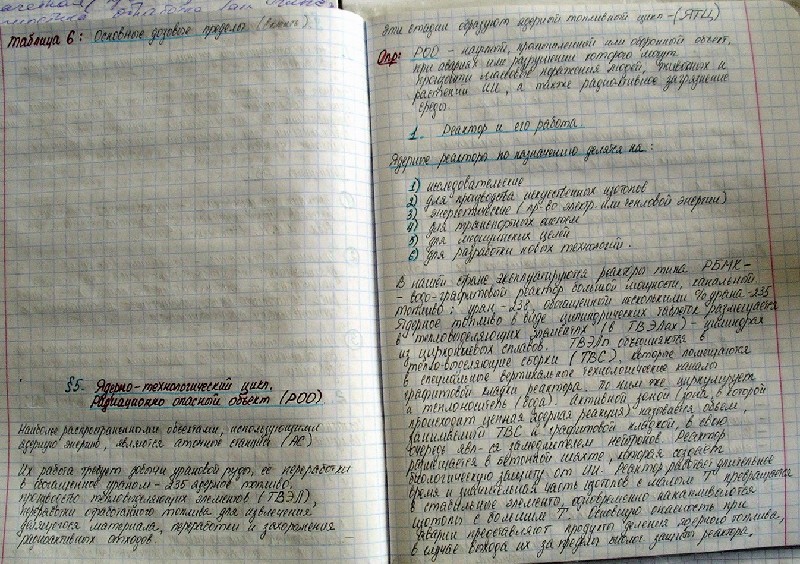 Таблица 6: Основные дозовые пределы (выписать)
§5. Ядерно-технологический цикл,
Радиационно опасный объект (РОО)
Наиболее распространенными объектами, использующими
ядерную энергию, являются атомные станции (АС)
Их работа требует добычи урановой руды, её переработки
в обогащенное ураном-235 ядерное топливо,
производство тепловыделяющих элементов (ТВЭЛ),
переработки отработанного топлива для извлечения
делящегося материала, переработки и захоронения
радиоактивных отходов
Эти стадии образуют ядерный топливный цикл-(ЯТЦ)
Опр: РОО - научный, промышленный или оборонный объект,
при авариях или разрушении которого могут
произойти массовые поражения людей, животных и
растений ИИ, а также радиоактивное загрязнение
среды
1. Реактор и его работа
Ядерные реакторы по назначению делятся на:
1) исследовательские
2) для производства искусственных изотопов
3) энергетические (пр-во электр. или тепловой энергии)
4) для транспортных систем
5) для медицинских целей
6) для разработки новых технологий.
В нашей стране эксплуатируются реакторы типа РБМК -
- водо-графитовый реактор большой мощности, канальный
Топливо: уран-238, обогащенной несколькими % урана-235
Ядерное топливо в виде цилиндрических таблеток размещается
в тепловыделяющих элементах (в ТВЭЛах) - цилиндрах
из циркониевых сплавов. ТВЭЛы объединяются в
тепло-выделяющие сборки (ТВС), которые помещаются
в специальные вертикальные технологические каналы
графитовой кладки реактора. По ним же циркулирует
и теплоноситель (вода). Активной зоной (зона, в которой
происходит цепная ядерная реакция) называется объем,
занимаемый ТВС и графитовой кладкой, в свою
очередь явл-ся замедлителем нейтронов. Реактор
размещается в бетонной шахте, которая создаёт
биологическую защиту от ИИ. Реактор работает длительное
время и значительная часть изотопов с малым Т превращается
в стабильные элементы, одновременно накапливаются
изотопы с большим Т. Основную опасность при
аварии представляют продукты деления ядерного топлива,
в случае выхода их за пределы биолог. защиты реактора.